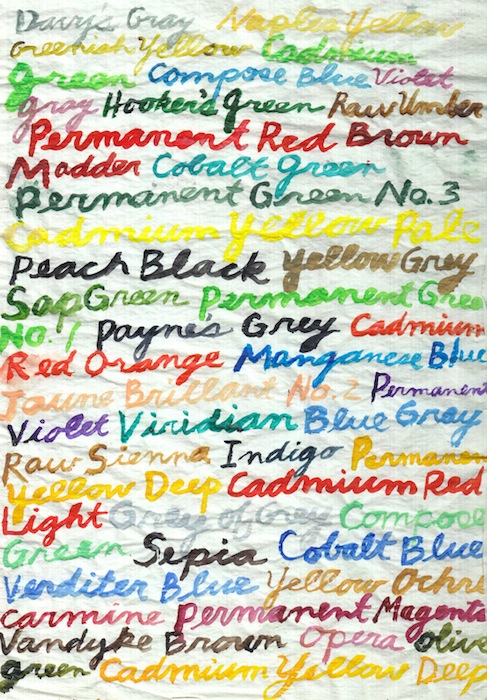 Davy's Gray Naples Yellow
Greenish Yellow Cadmium
Green Compose Blue Violet
Gray Hooker's Green Raw Umber
Permanent Red Brown
Madder Cobalt Green
Permanent Green No.3
Cadmium Yellow Pale
Peach Black Yellow Grey
Sap Green Permanent Gree
No. 1 Payne's Grey Cadmium
Red Orange Manganese Blue
Jaune Brillant No. 2 Permanent
Violet Viridian Blue Gray
Raw Sienna Indigo Permanen
Yellow Deep Cadmium Red
Light Grey of Grey Compose
Green Sepia Cobalt Blue
Verditer Blue Yellow Ochre
Carmine Permanent Magenta
Vandyke Brown Opera Olive
Green Cadmium Yellow Deep